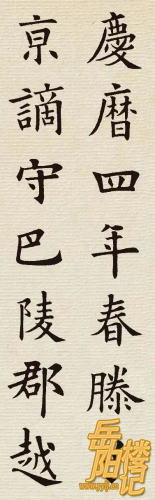 慶曆四年春滕子
京謫守巴陵郡越
岳阳楼记